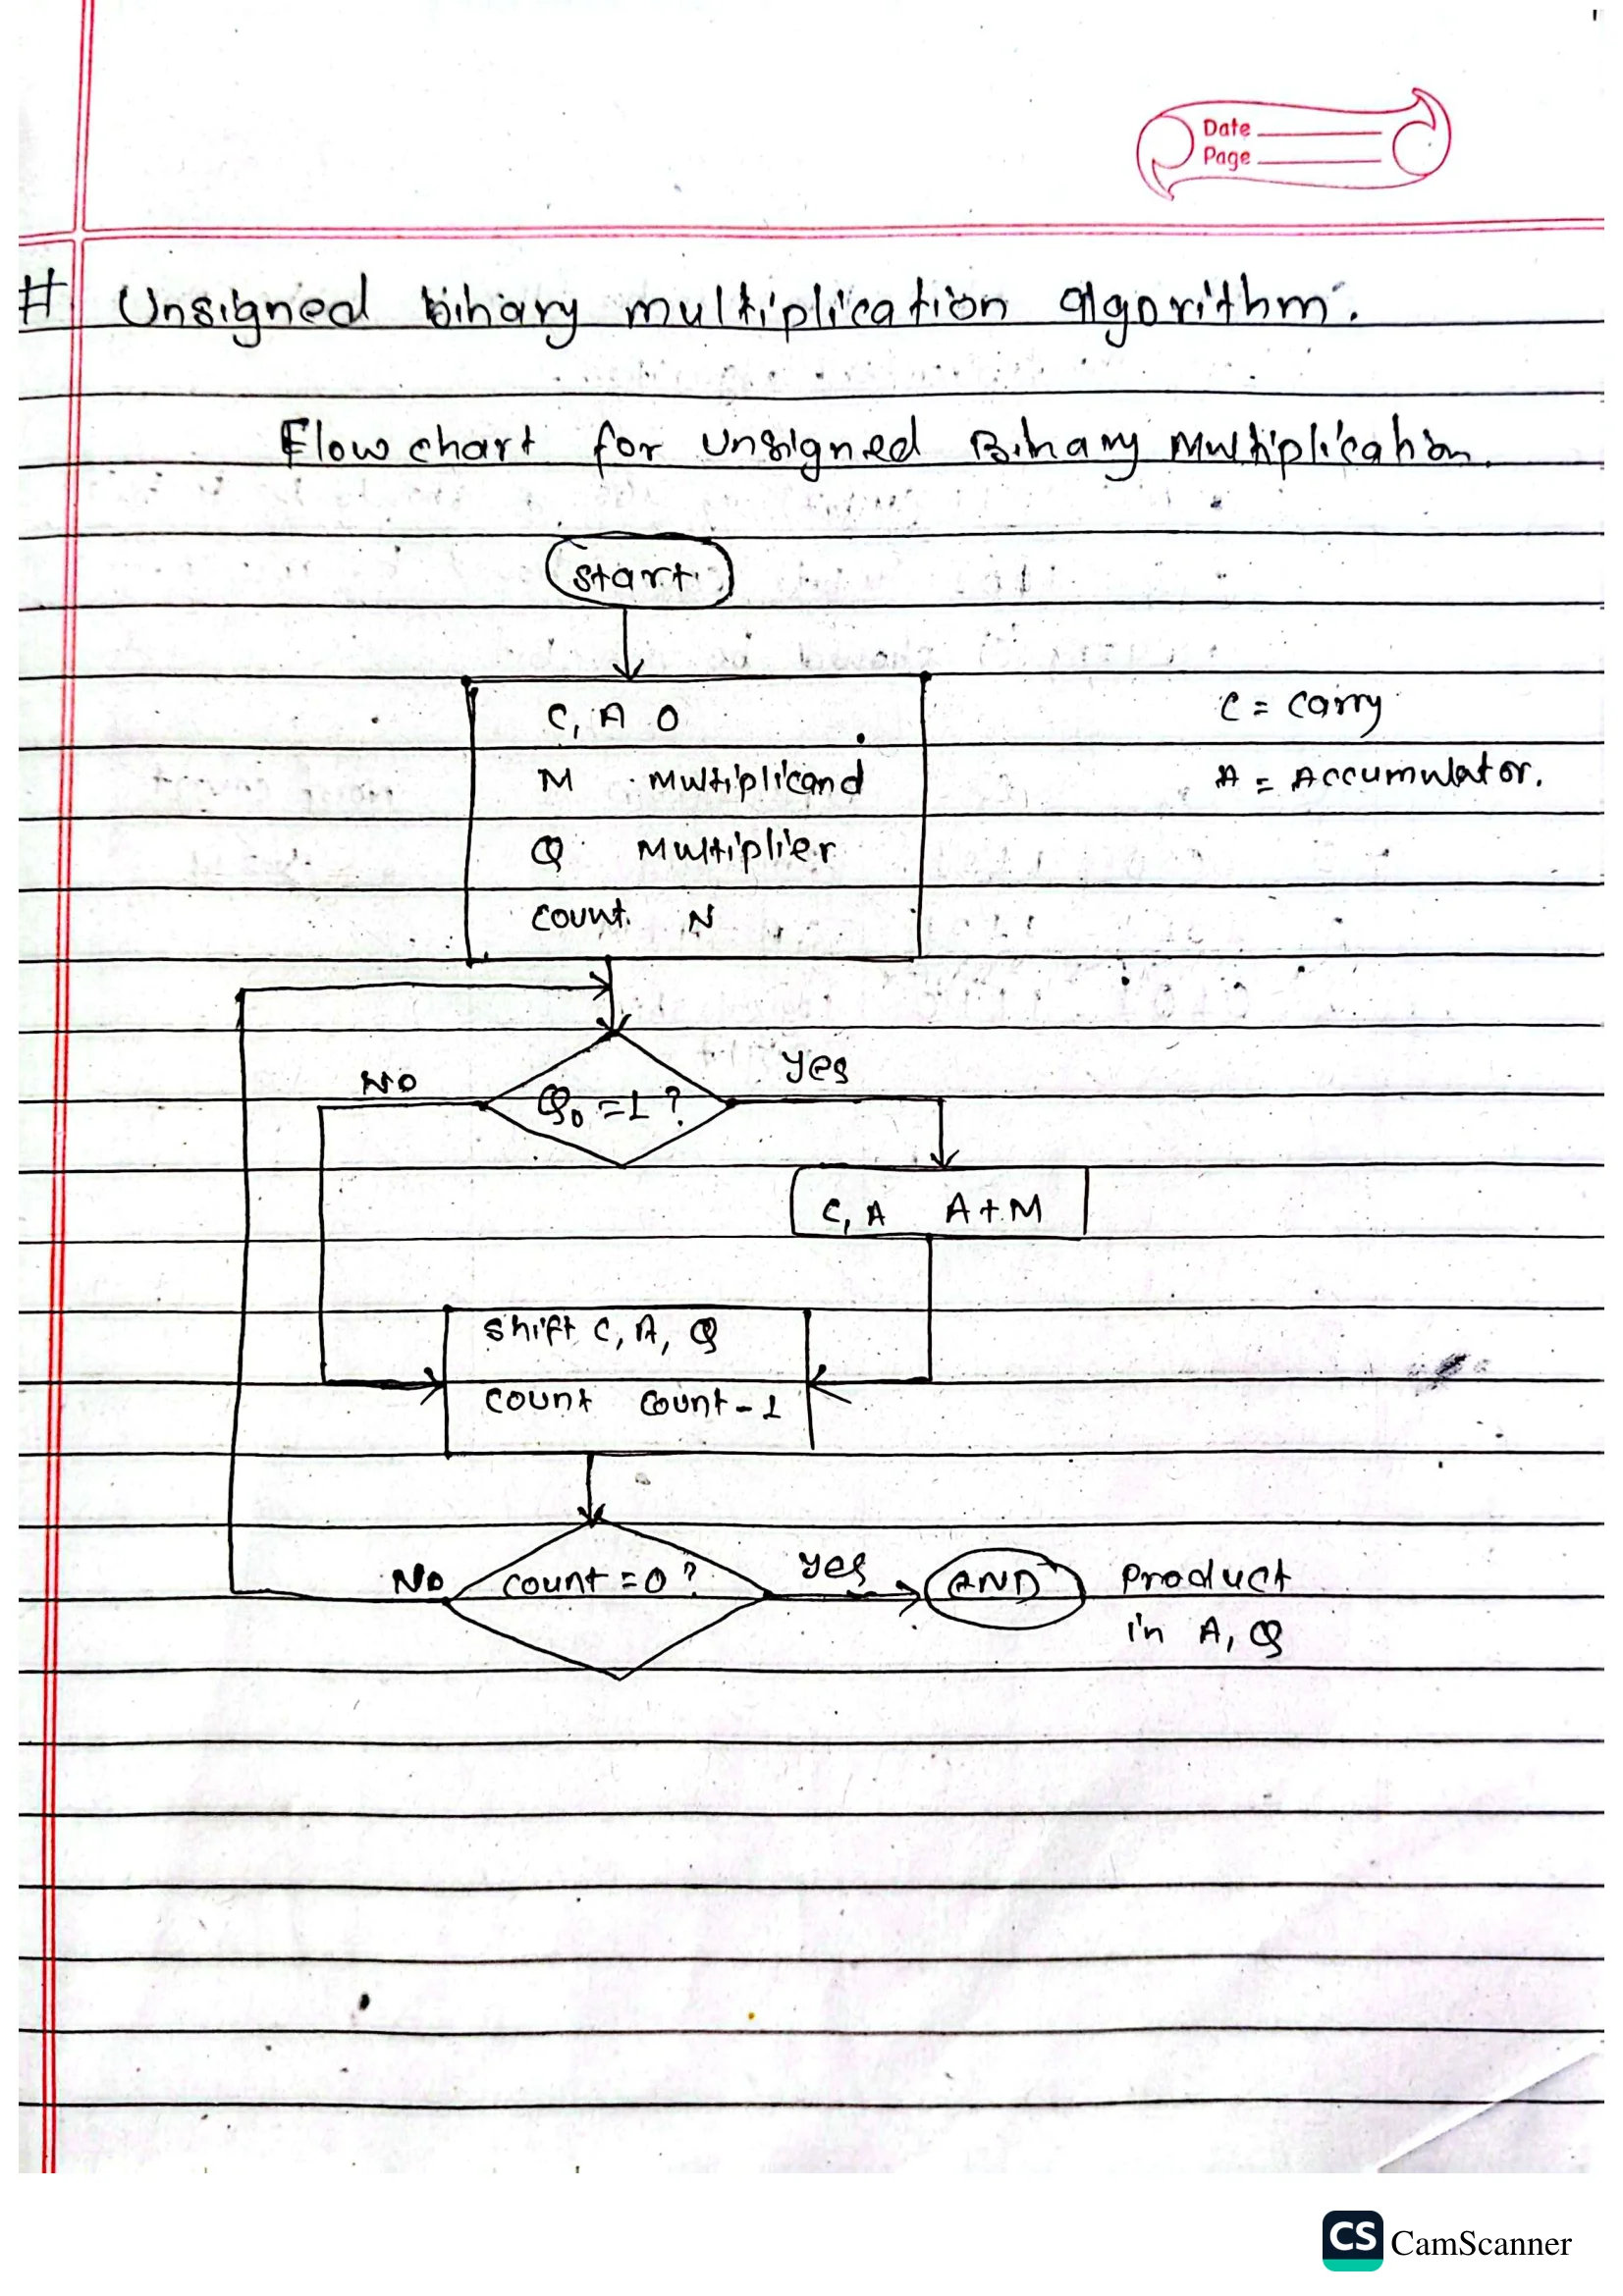 Date
Page
# Unsigned binary multiplication algorithm.
Flow chart for unsigned Binary Multiplication.
start
C, A 0
C = Carry
M Multiplicand
A = Accumulator.
Q Multiplier
count N
No
Q0 = 1 ?
yes
C, A A+M
shift C, A, Q
count count - 1
No
count = 0 ?
yes
AND
Product
in A, Q
CS CamScanner